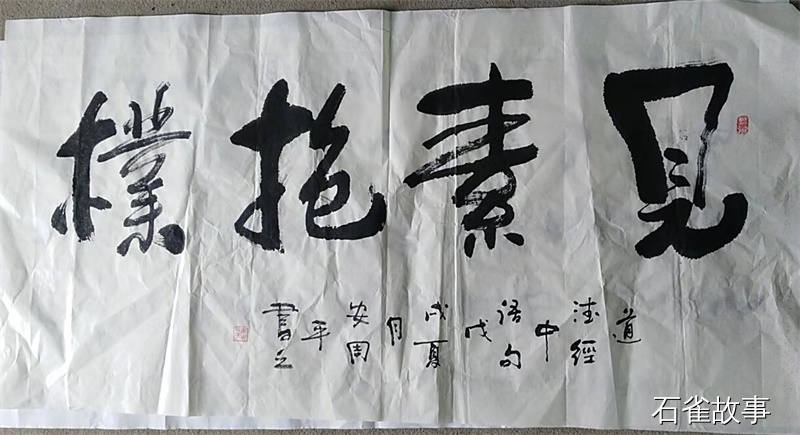 見素抱樸
道德經中語句戊戌夏月安周平書之
石雀故事